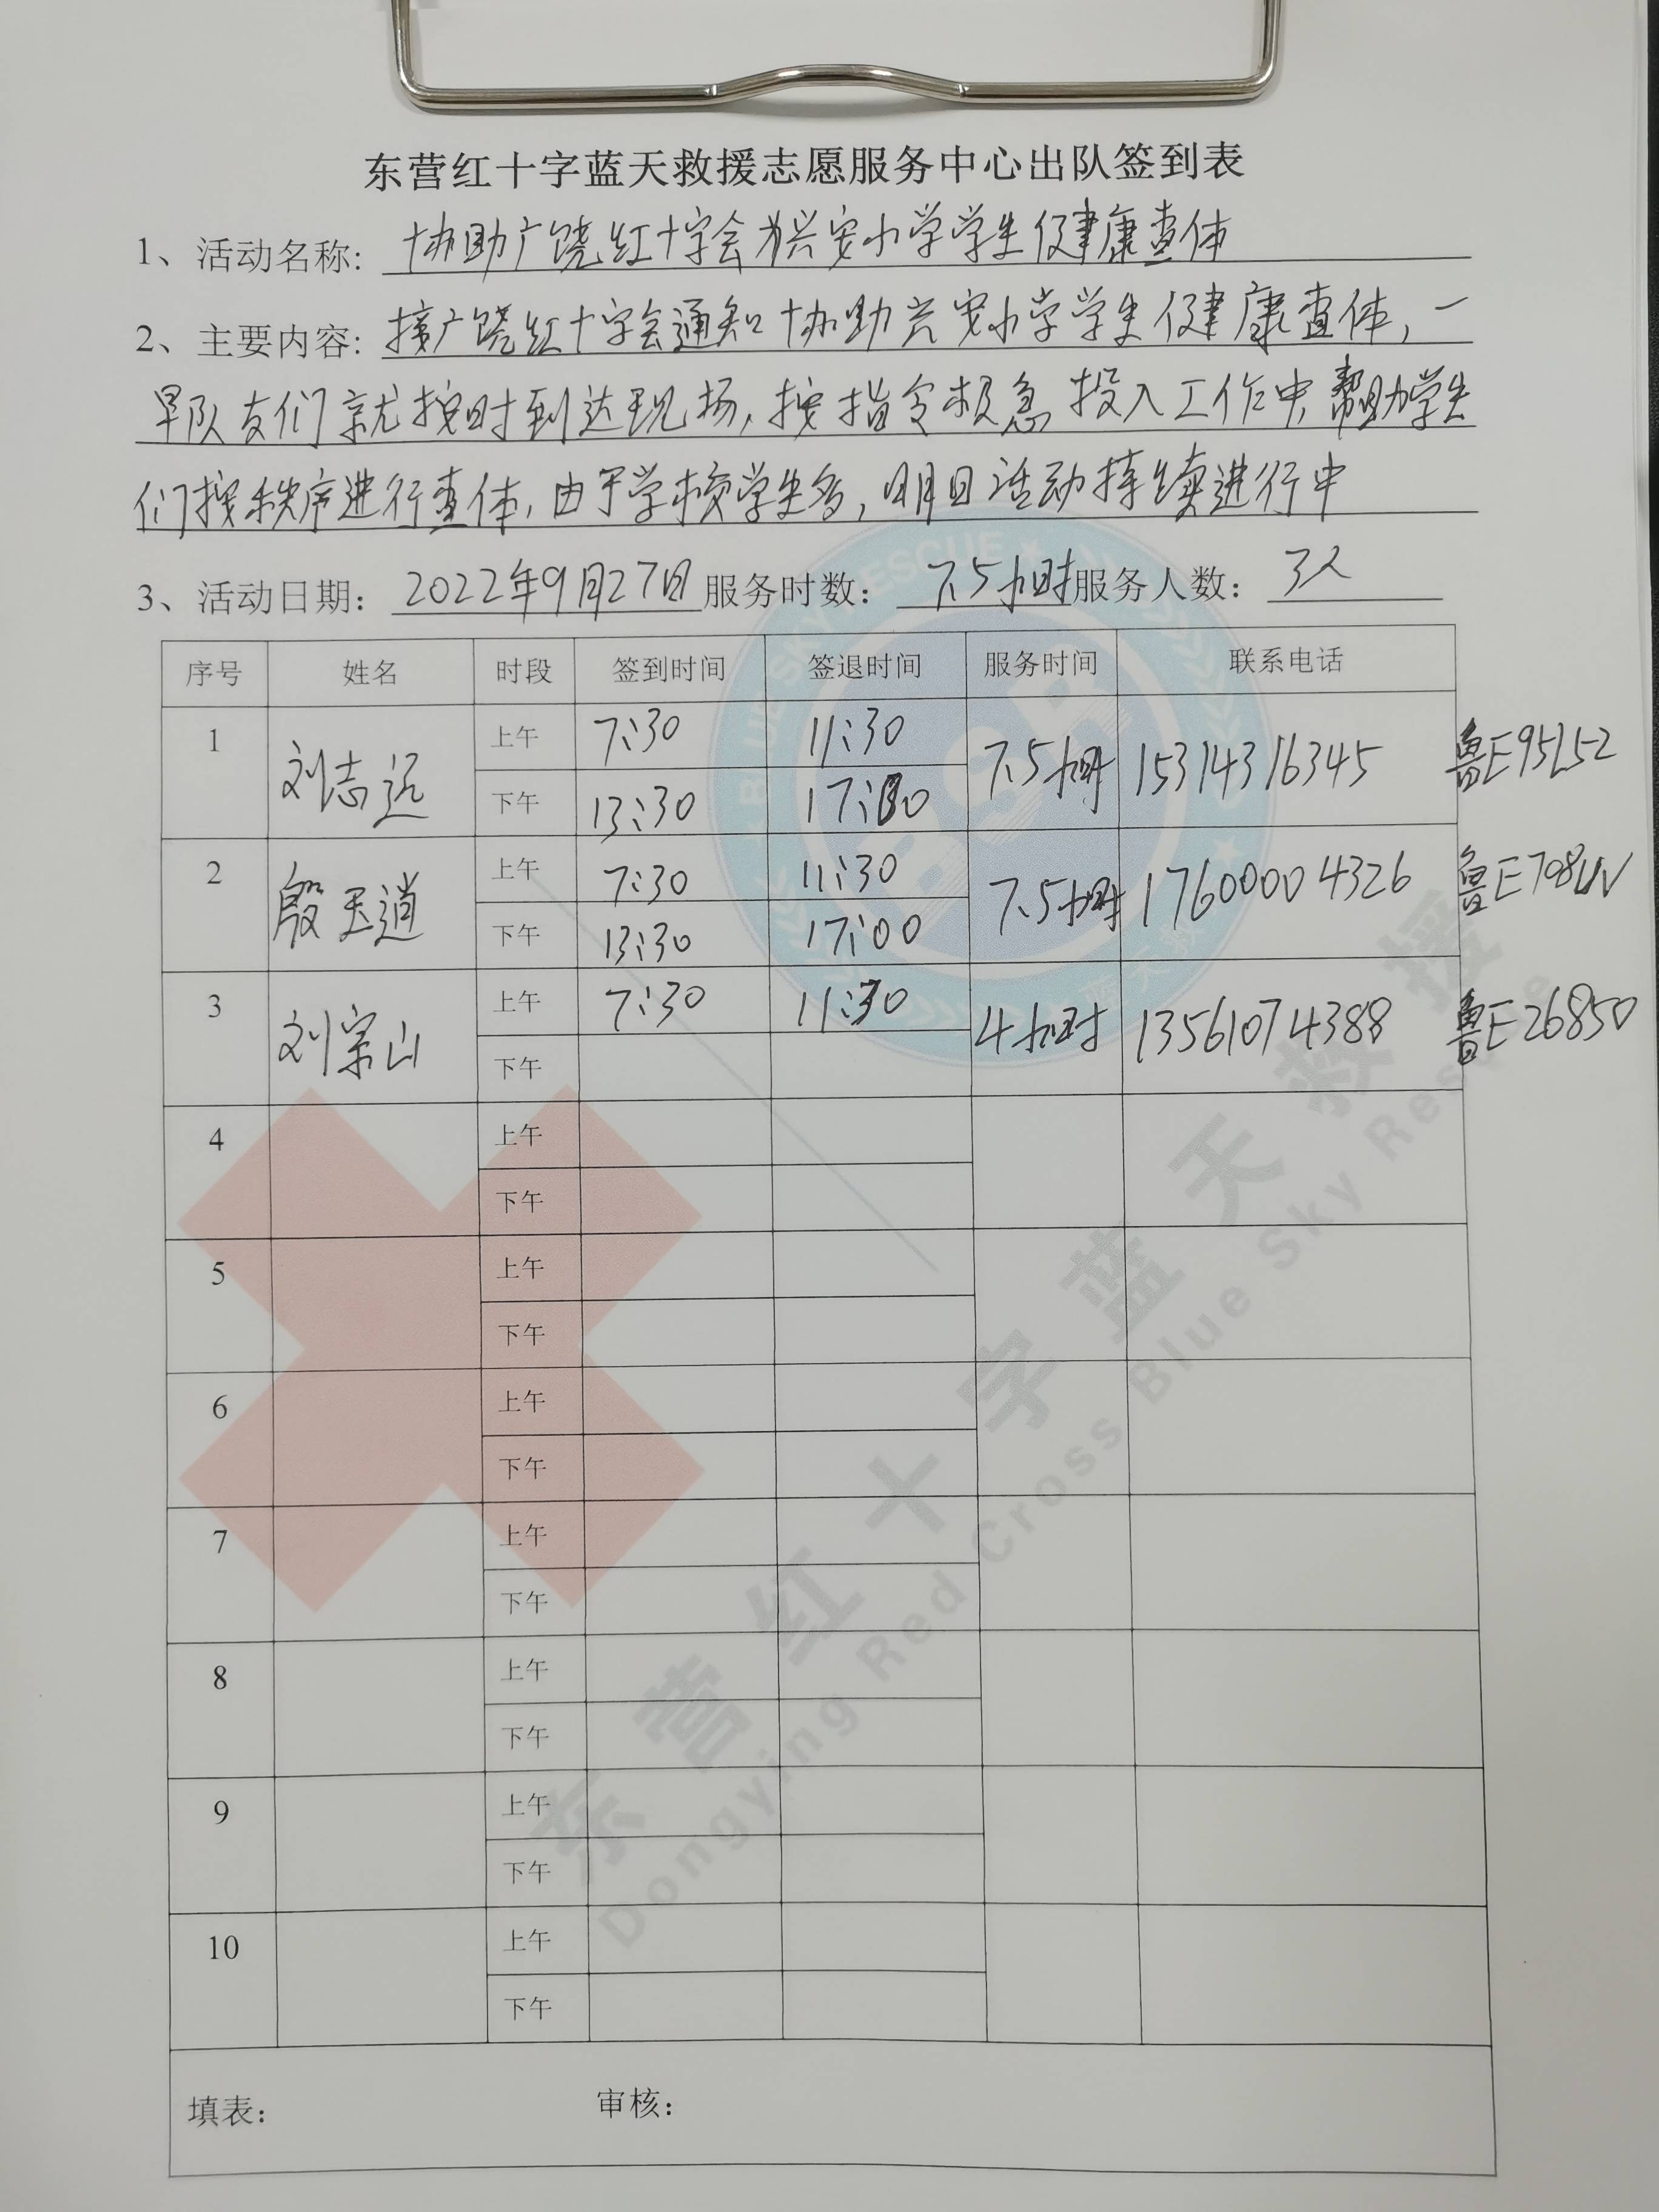 东营红十字蓝天救援志愿服务中心出队签到表
1、活动名称: 协助广饶红十字会为兴安小学学生健康查体
2、主要内容: 接广饶红十字会通知协助兴安小学学生健康查体，一
早队友们就按时到达现场，按指令极急投入工作中 帮助学生
们按秩序进行查体，由于学校学生多，明日活动持续进行中
3、活动日期: 2022年9月27日 服务时数: 7.5小时 服务人数: 3人
序号 姓名 时段 签到时间 签退时间 服务时间 联系电话
1 刘志远 上午 7:30 11:30 7.5小时 15314316345 鲁E95L52
下午 13:30 17:00
2 殷玉道 上午 7:30 11:30 7.5小时 17600004326 鲁E708UV
下午 13:30 17:00
3 刘宗山 上午 7:30 11:30 4小时 13561074388 鲁E26850
下午
4 上午
下午
5 上午
下午
6 上午
下午
7 上午
下午
8 上午
下午
9 上午
下午
10 上午
下午
填表: 审核:
东营红十字蓝天救援
Dongying Red Cross Blue Sky Rescue
BLUE SKY RESCUE